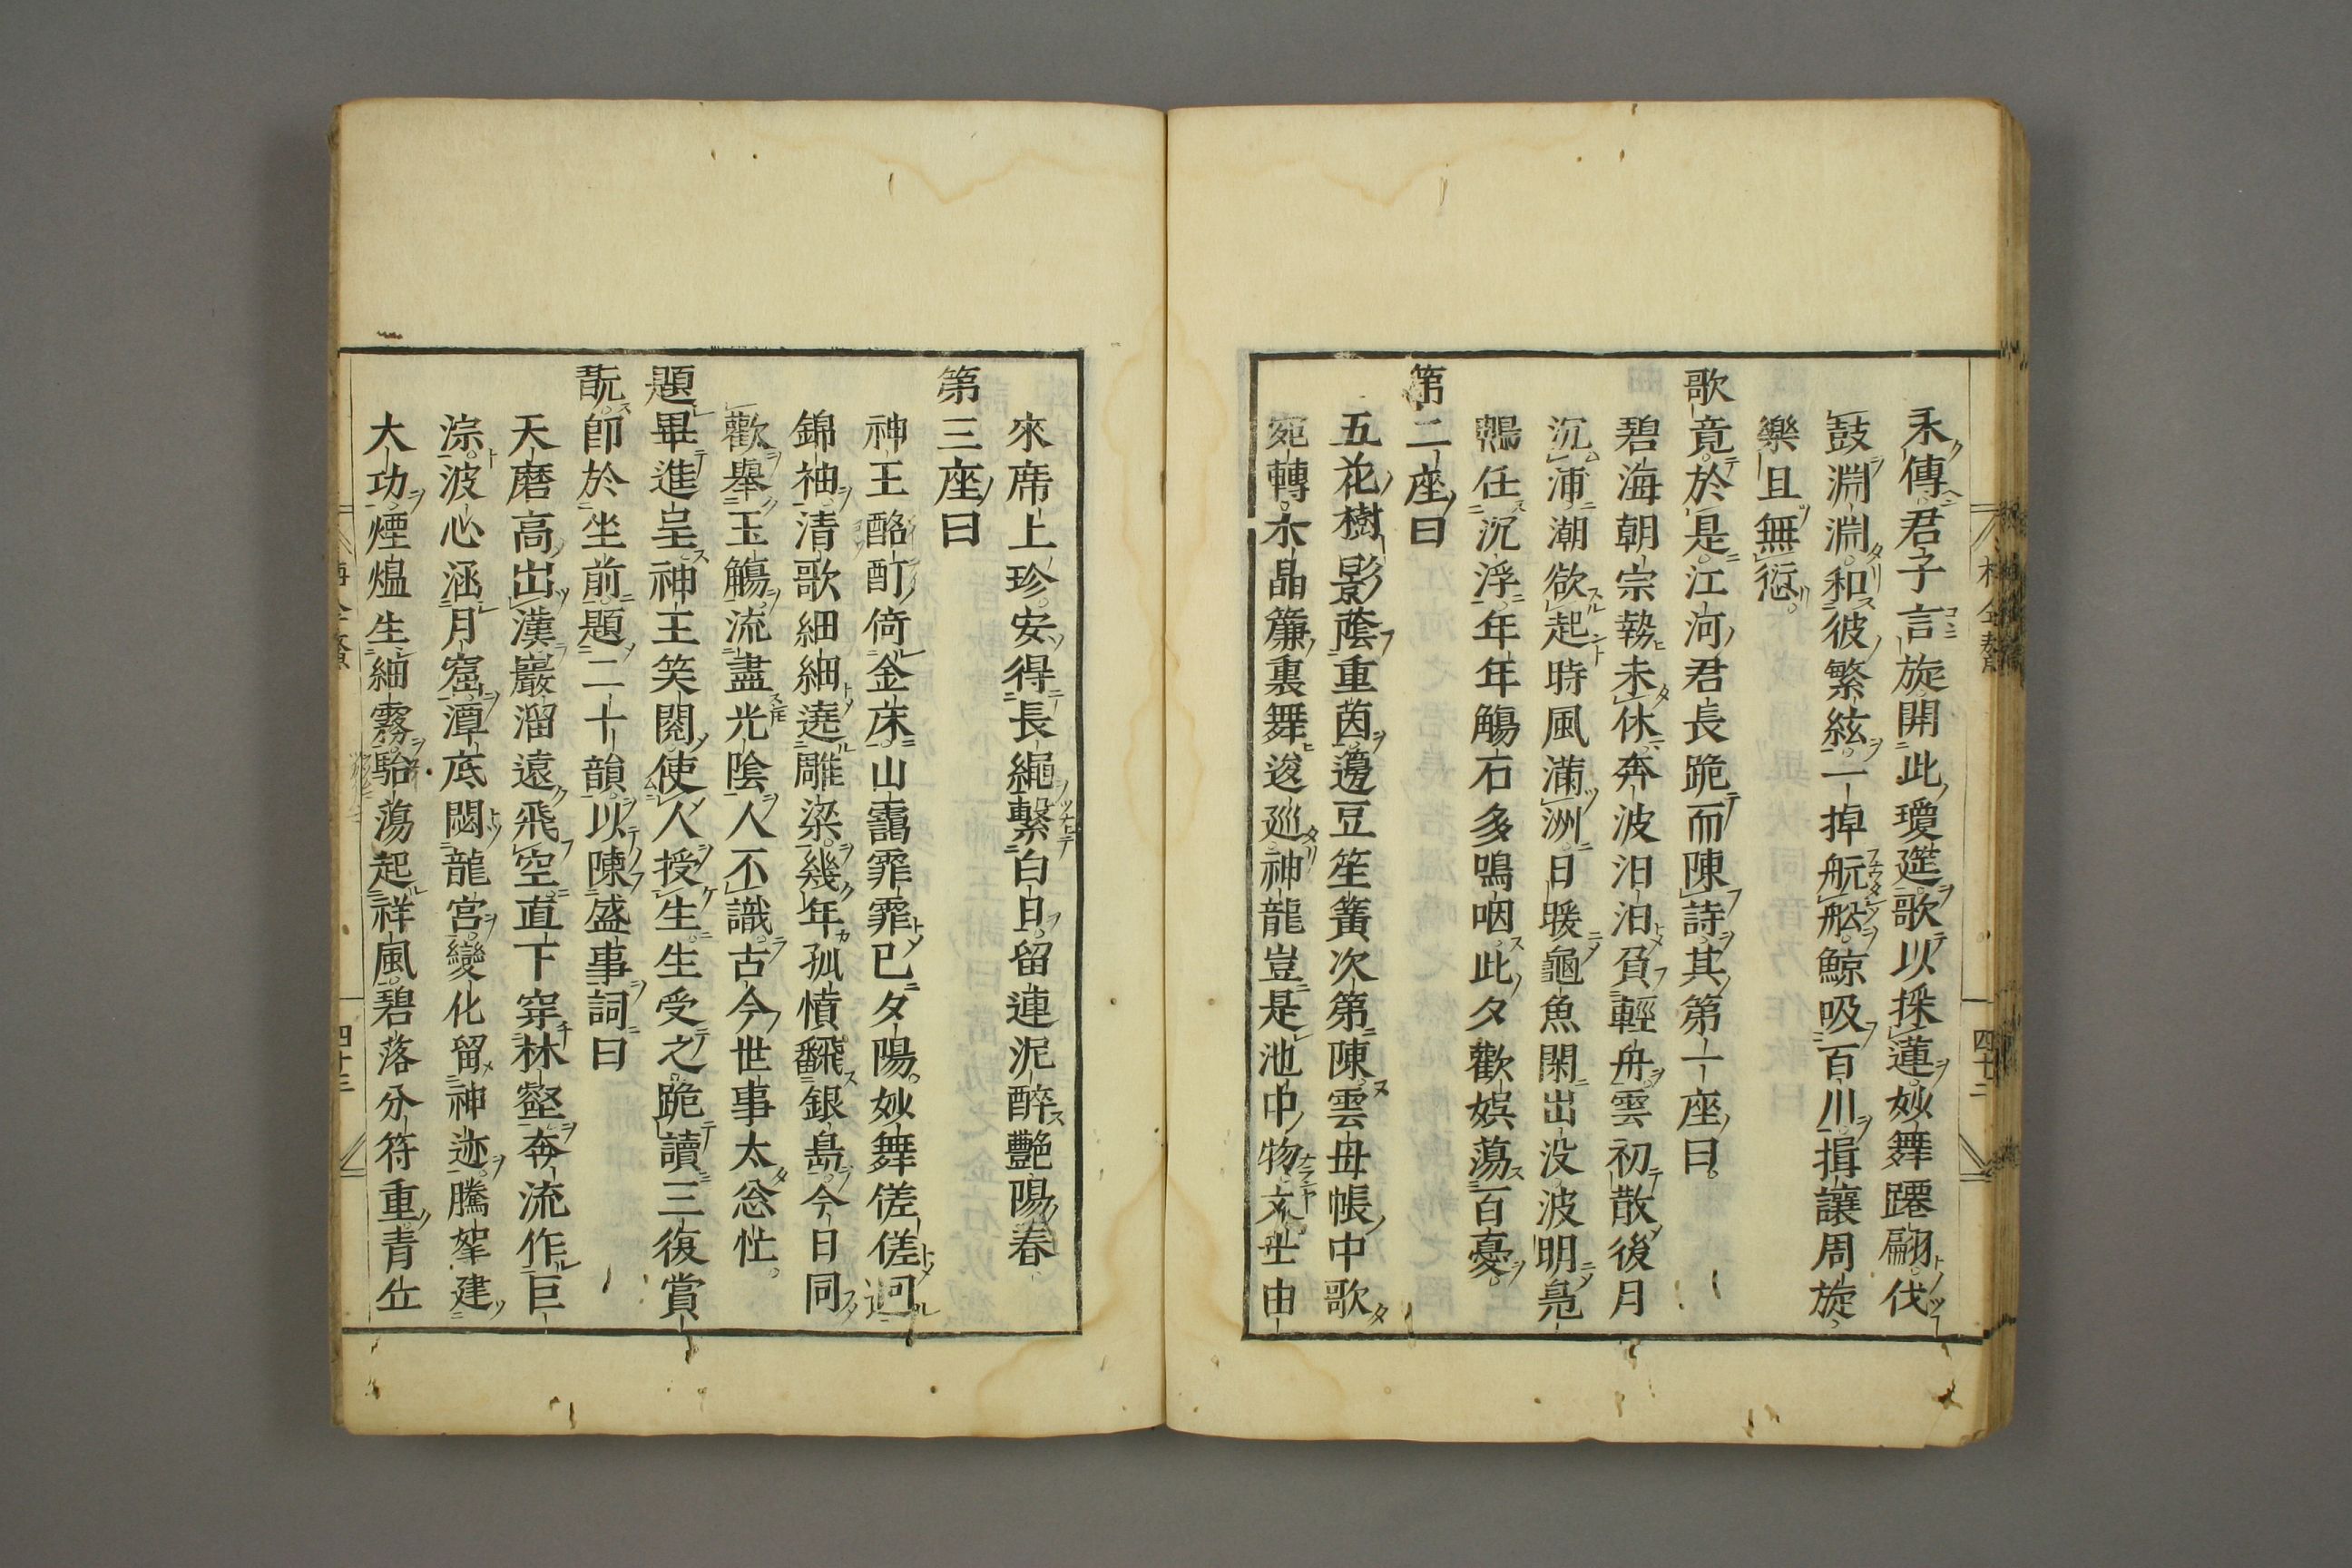 永傳君子言旋開此瓊莚歌以採蓮妙舞蹮翩伐
鼓淵淵和彼繁絃一掉舩鯨吸百川揖讓周旋
樂且無愆
歌竟於是江河君長跪而陳詩其第一座曰
碧海朝宗勢未休奔波汨汨負輕舟雲初散後月
沉浦潮欲起時風滿洲日暖龜魚閑出没波明鳧
鴨任沉浮年年觴石多鳴咽此夕歡娯蕩百憂
第二座曰
五花樹影蔭重茵籩豆笙簧次第陳雲母帳中歌
宛轉水晶簾裏舞逡巡神龍豈是池中物文士由
來席上珍安得長繩繫白日留連泥醉艶陽春
第三座曰
神王酩酊倚金床山靄霏霏已夕陽妙舞傞傞廻
錦袖清歌細細遶雕梁幾年孤憤飜銀島今日同
歡舉玉觴流盡光陰人不識古今世事太忩忙
題畢進呈神王笑閱使人授生生受之跪讀三復賞
翫卽於坐前題二十韻以陳盛事詞曰
天磨高出漢巖溜遠飛空直下穿林壑奔流作巨
淙波心涵月窟潭底閟龍宮變化留神迹騰拏建
大功煙熅生細霧駘蕩起祥風碧落分符重青丘
四十二
四十三